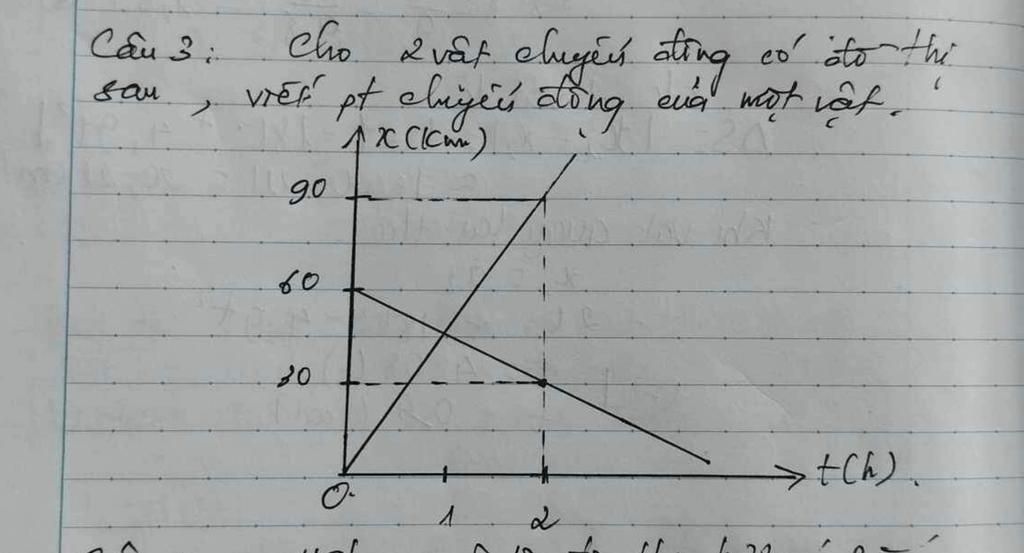 Câu 3: Cho 2 vật chuyển động có đồ thị
sau, viết pt chuyển động của một vật.
x (Km)
90
60
30
0
1
2
t(h).